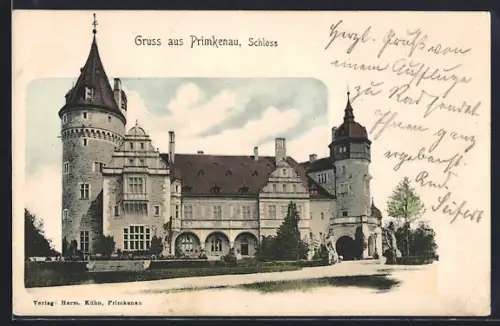 Gruss aus Primkenau, Schloss
Herzl. Gruß von
einem Ausfluge
zu Rad sendet
Ihnen ganz
ergebenst
Rud.
Seifert
Verlag: Herm. Kühn, Primkenau